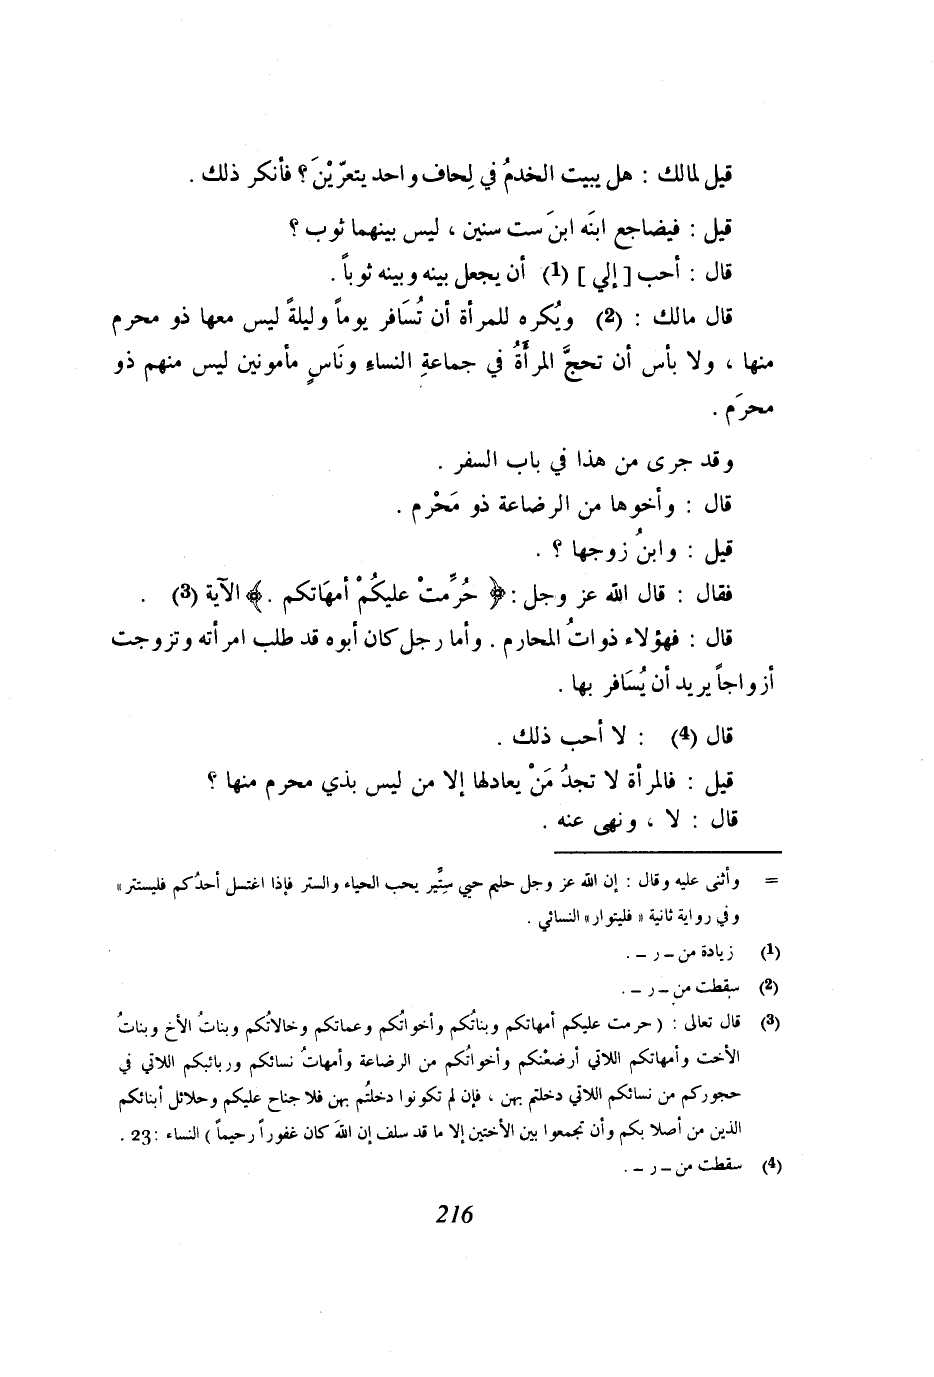 قيل لمالك : هل يبيت الخدمُ في لِحاف واحد يتعرّيْنَ ؟ فأنكر ذلك .
قيل : فيضاجع ابنَه ابنَ ست سنين ، ليس بينهما ثوب ؟
قال : أحب [ إلي ] (1) أن يجعل بينه وبينه ثوباً .
قال مالك : (2) ويُكره للمرأة أن تُسَافر يوماً وليلةً ليس معها ذو محرم
منها ، ولا بأس أن تحجَّ المرأَةُ في جماعةِ النساءِ ونَاسٍ مأمونين ليس منهم ذو
محرَم .
وقد جرى من هذا في باب السفر .
قال : وأخوها من الرضاعة ذو مَحْرم .
قيل : وابنُ زوجها ؟ .
فقال : قال الله عز وجل : ﴿ حُرِّمتْ عليكُمْ أمهَاتكم . ﴾ الآية (3) .
قال : فهؤلاء ذواتُ المحارم . وأما رجل كان أبوه قد طلب امرأته وتزوجت
أزواجاً يريد أن يُسَافر بها .
قال (4) : لا أحب ذلك .
قيل : فالمرأة لا تجدُ مَنْ يعادلها إلا من ليس بذي محرم منها ؟
قال : لا ، ونهى عنه .
= وأثنى عليه وقال : إن الله عز وجل حليم حيي سِتِّير يحب الحياء والستر فإذا اغتسل أحدُكم فليستتر »
وفي رواية ثانية « فليتوار » النسائي .
(1) زيادة من ـ ر ـ .
(2) سقطت من ـ ر ـ .
(3) قال تعالى : ( حرمت عليكم أمهاتكم وبناتُكم وأخواتُكم وعماتكم وخالاتُكم وبناتُ الأخ وبناتُ
الأخت وأمهاتكم اللاتي أرضعْنكم وأخواتُكم من الرضاعة وأمهاتُ نسائكم وربائبكم اللاتي في
حجوركم من نسائكم اللاتي دخلتم بهن ، فإن لم تكونوا دخلتُم بهن فلا جناح عليكم وحلائل أبنائكم
الذين من أصلابكم وأن تجمعوا بين الأختين إلا ما قد سلف إن اللهَ كان غفوراً رحيماً ) النساء : 23 .
(4) سقطت من ـ ر ـ .
216